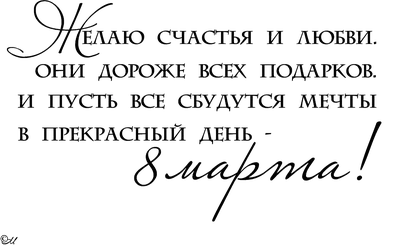 Желаю счастья и любви.
Они дороже всех подарков.
И пусть все сбудутся мечты
В прекрасный день -
8 марта!